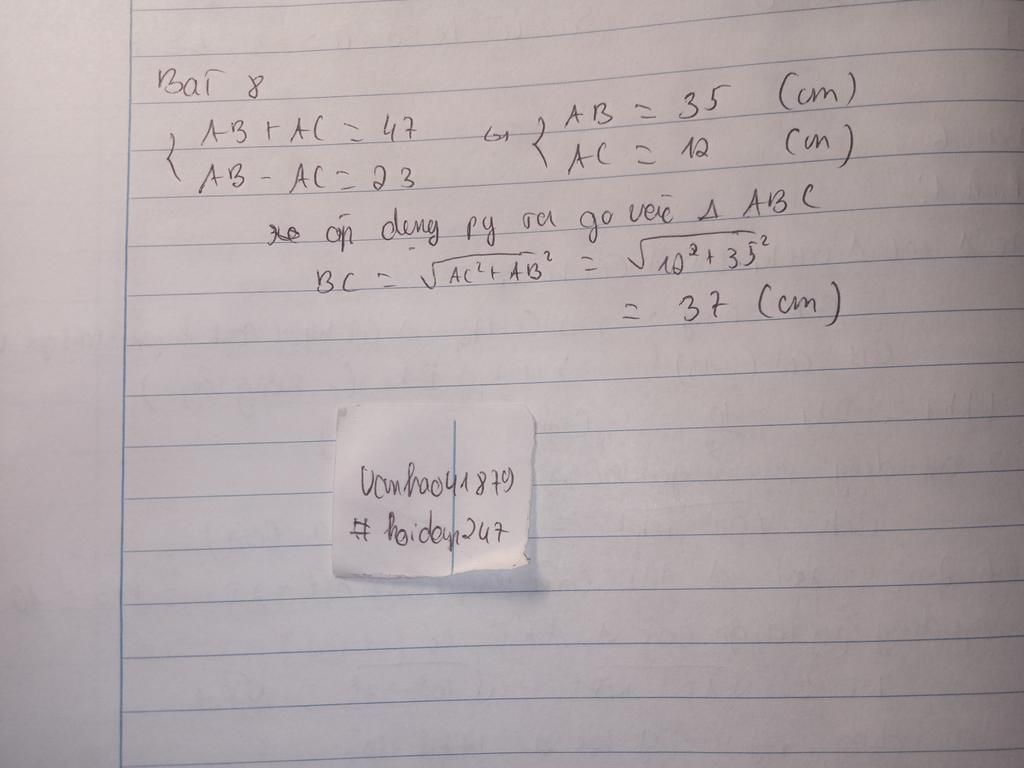 Bài 8
{ AB + AC = 47 ⇔ { AB = 35 (cm)
AB - AC = 23 AC = 12 (cm)
áp dụng py ta go vào Δ ABC
BC = √AC² + AB² = √12² + 35²
= 37 (cm)
Vanhao41879
# hoidap247